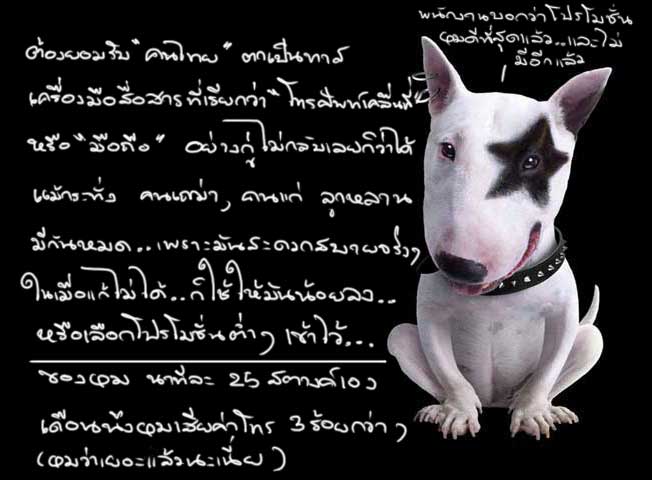 พนักงานบอกว่าโปรโมชั่น
ผมดีที่สุดแล้ว..และไม่
มีอีกแล้ว
ต้องยอมรับ "คนไทย" ตกเป็นทาส
เครื่องมือสื่อสารที่เรียกว่า "โทรศัพท์เคลื่อนที่"
หรือ "มือถือ" อย่างกู่ไม่กลับเลยก็ว่าได้
แม้กระทั่ง คนเฒ่า, คนแก่ ลูกหลาน
มีกันหมด..เพราะมันสะดวกสบายจริงๆ
ในเมื่อแก้ไม่ได้..ก็ใช้ให้มันน้อยลง..
หรือเลือกโปรโมชั่นต่ำๆ เข้าไว้...
ของผม นาทีละ 25 สตางค์เอง
เดือนนึงผมเสียค่าโทร 3 ร้อยกว่าๆ
(ผมว่าเยอะแล้วนะเนี่ย)